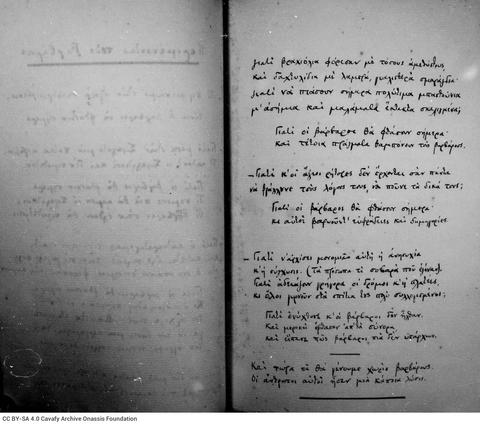 γιατί βραχιόλια φόρεσαν μὲ τόσους ἀμεθύστους,
καὶ δαχτυλίδια μὲ λαμπρά, γυαλιστερὰ σμαράγδια·
γιατί νὰ πιάσουν σήμερα πολύτιμα μπαστούνια
μ' ἀσήμια καὶ μαλάματα ἔκτακτα σκαλιγμένα;
Γιατὶ οἱ βάρβαροι θὰ φθάσουν σήμερα·
καὶ τέτοια πράγματα θαμπόνουν τοὺς βαρβάρους.
—Γιατί κ' οἱ ἄξιοι ῥήτορες δὲν ἔρχονται σὰν πάντα
νὰ βγάλουνε τοὺς λόγους τους, νὰ ποῦνε τὰ δικά τους;
Γιατὶ οἱ βάρβαροι θὰ φθάσουν σήμερα·
κι αὐτοὶ βαρυοῦντ' εὐφράδειες καὶ δημηγορίες.
—Γιατί ν' ἀρχίσει μονομιᾶς αὐτὴ ἡ ἀνησυχία
κ' ἡ σύγχυσις. (Τὰ πρόσωπα τί σοβαρὰ ποὺ ἔγιναν).
Γιατί ἀδειάζουν γρήγορα οἱ δρόμοι κ' ἡ πλατέες,
κι ὅλοι γυρνοῦν στὰ σπίτια τους πολὺ συλλογισμένοι;
Γιατὶ ἐνύχτωσε κ' οἱ βάρβαροι δὲν ἦλθαν.
Καὶ μερικοὶ ἔφθασαν ἀπ' τὰ σύνορα,
καὶ εἴπανε πὼς βάρβαροι πιὰ δὲν ὑπάρχουν.
Καὶ τώρα τί θὰ γένουμε χωρὶς βαρβάρους.
Οἱ ἄνθρωποι αὐτοὶ ἦσαν μιὰ κάποια λύσις.
CC BY-SA 4.0 Cavafy Archive Onassis Foundation